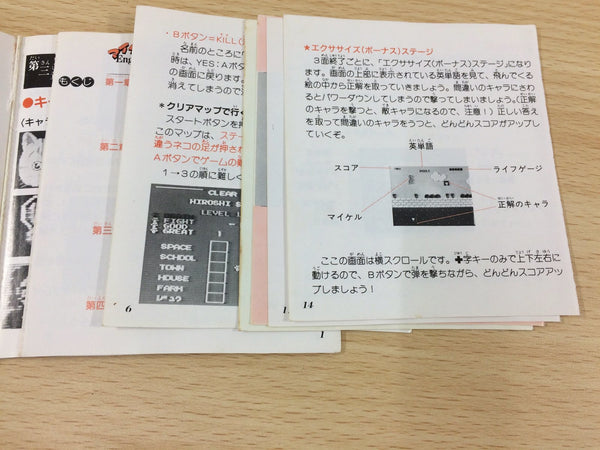 第三
●キ
マイ
Eng
もくじ
第一章
第二章
第三
第四
1
Bボタン=KILL(
名前のところに
時は、YES:Aボタ
の画面に戻ります。
消えてしまうので
＊クリアマップで行く
スタートボタンを押
このマップは、ステー
違うネコの足が押され
Aボタンでゲームの難
1→3の順に難しく
CLEAR
HIROSHI S
LEVEL 1
FIGHT
GOOD
GREAT
SPACE
SCHOOL
TOWN
HOUSE
FARM
6
★エクササイズ(ボーナス)ステージ
3面終了ごとに、「エクササイズ(ボーナス)ステージ」になり
ます。画面の上部に表示されている英単語を見て、飛んでくる
絵の中から正解を取っていきましょう。間違いのキャラにさわ
るとパワーダウンしてしまうので撃ってしまいましょう。(正解
のキャラを撃つと、敵キャラになるので、注意！)正しい答え
を取って間違いのキャラをうつと、どんどんスコアがアップし
ていくぞ。
英単語
スコア
ライフゲージ
マイケル
正解のキャラ
ここの画面は横スクロールです。✚字キーのみで上下左右に
動けるので、Bボタンで弾を撃ちながら、どんどんスコアアッ
プしましょう！
14